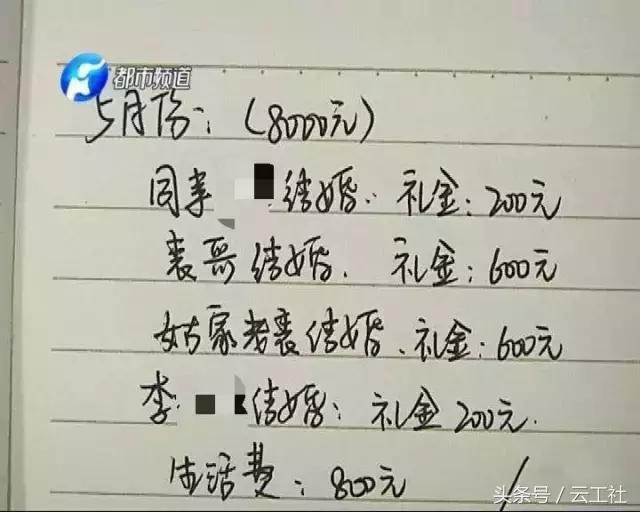 都市频道
5月份：(8000元)
同事 结婚：礼金：200元
表哥结婚、礼金：600元
姑家老表结婚、礼金：600元
李 结婚：礼金200元.
生活费：800元
头条号／云工社